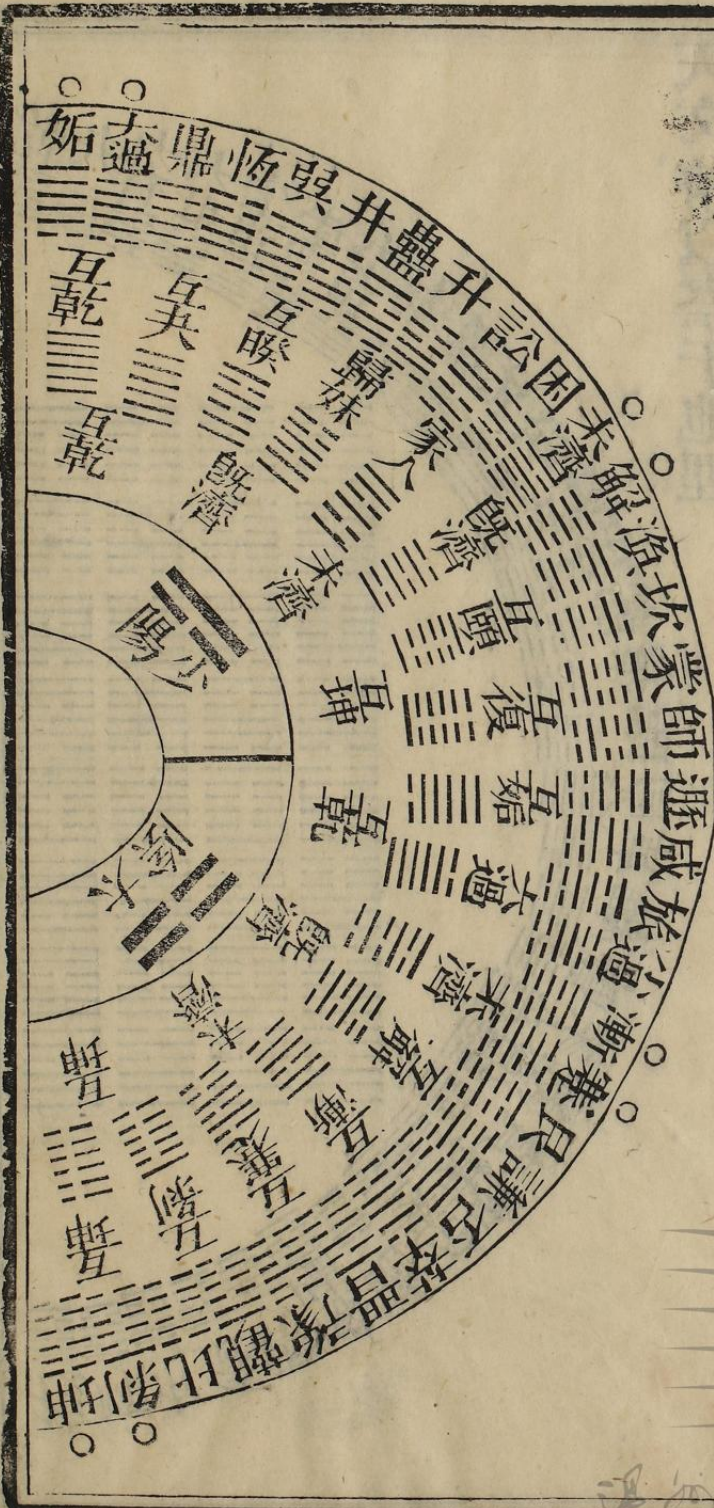 姤 大過 鼎 恆 巽 井 蠱 升 訟 困 未濟 解 渙 坎 蒙 師 遯 咸 旅 小過 漸 蹇 艮 謙 否 萃 晋 豫 觀 比 剝 坤
互乾 互夬 互睽 歸妹 家人 既濟 互頤 互復 互姤 大過 未濟 互解 互漸 互蹇 互剝 互坤
互乾 既濟 未濟 互坤 互乾 既濟 未濟 互坤
少陽
太陰